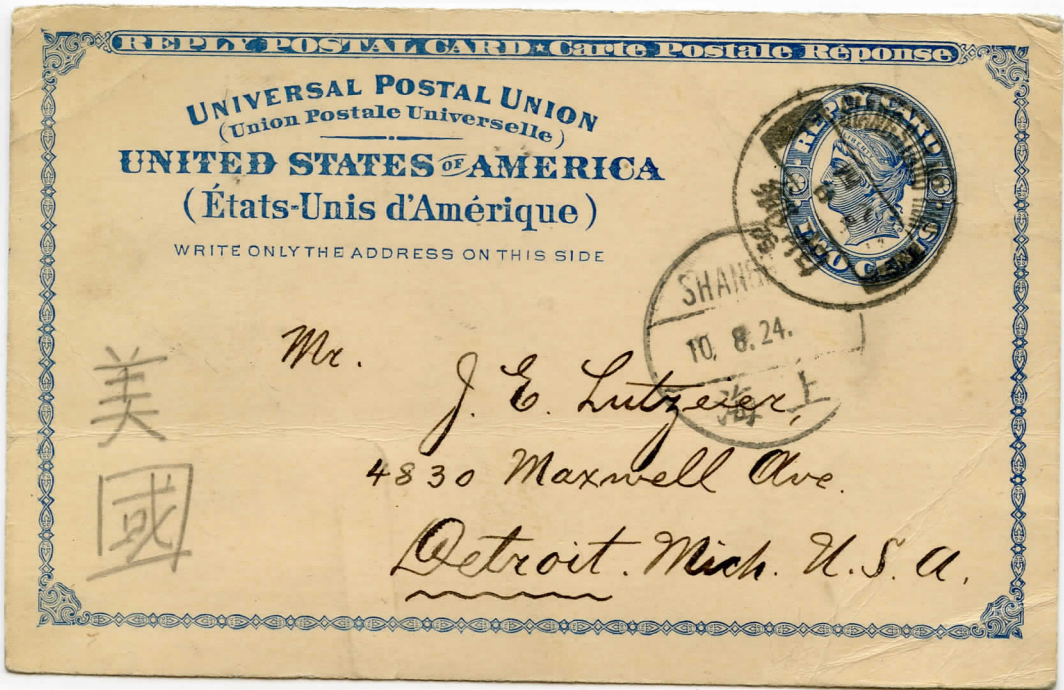 REPLY POSTAL CARD ★ Carte Postale Réponse
UNIVERSAL POSTAL UNION
(Union Postale Universelle)
UNITED STATES OF AMERICA
(États-Unis d'Amérique)
WRITE ONLY THE ADDRESS ON THIS SIDE
REPLY CARD
LIBERTY
TWO
10. 8. 24.
上海
Mr.
J. E. Lutzeier,
4830 Maxwell Ave.
Detroit. Mich. U. S. A.
美國